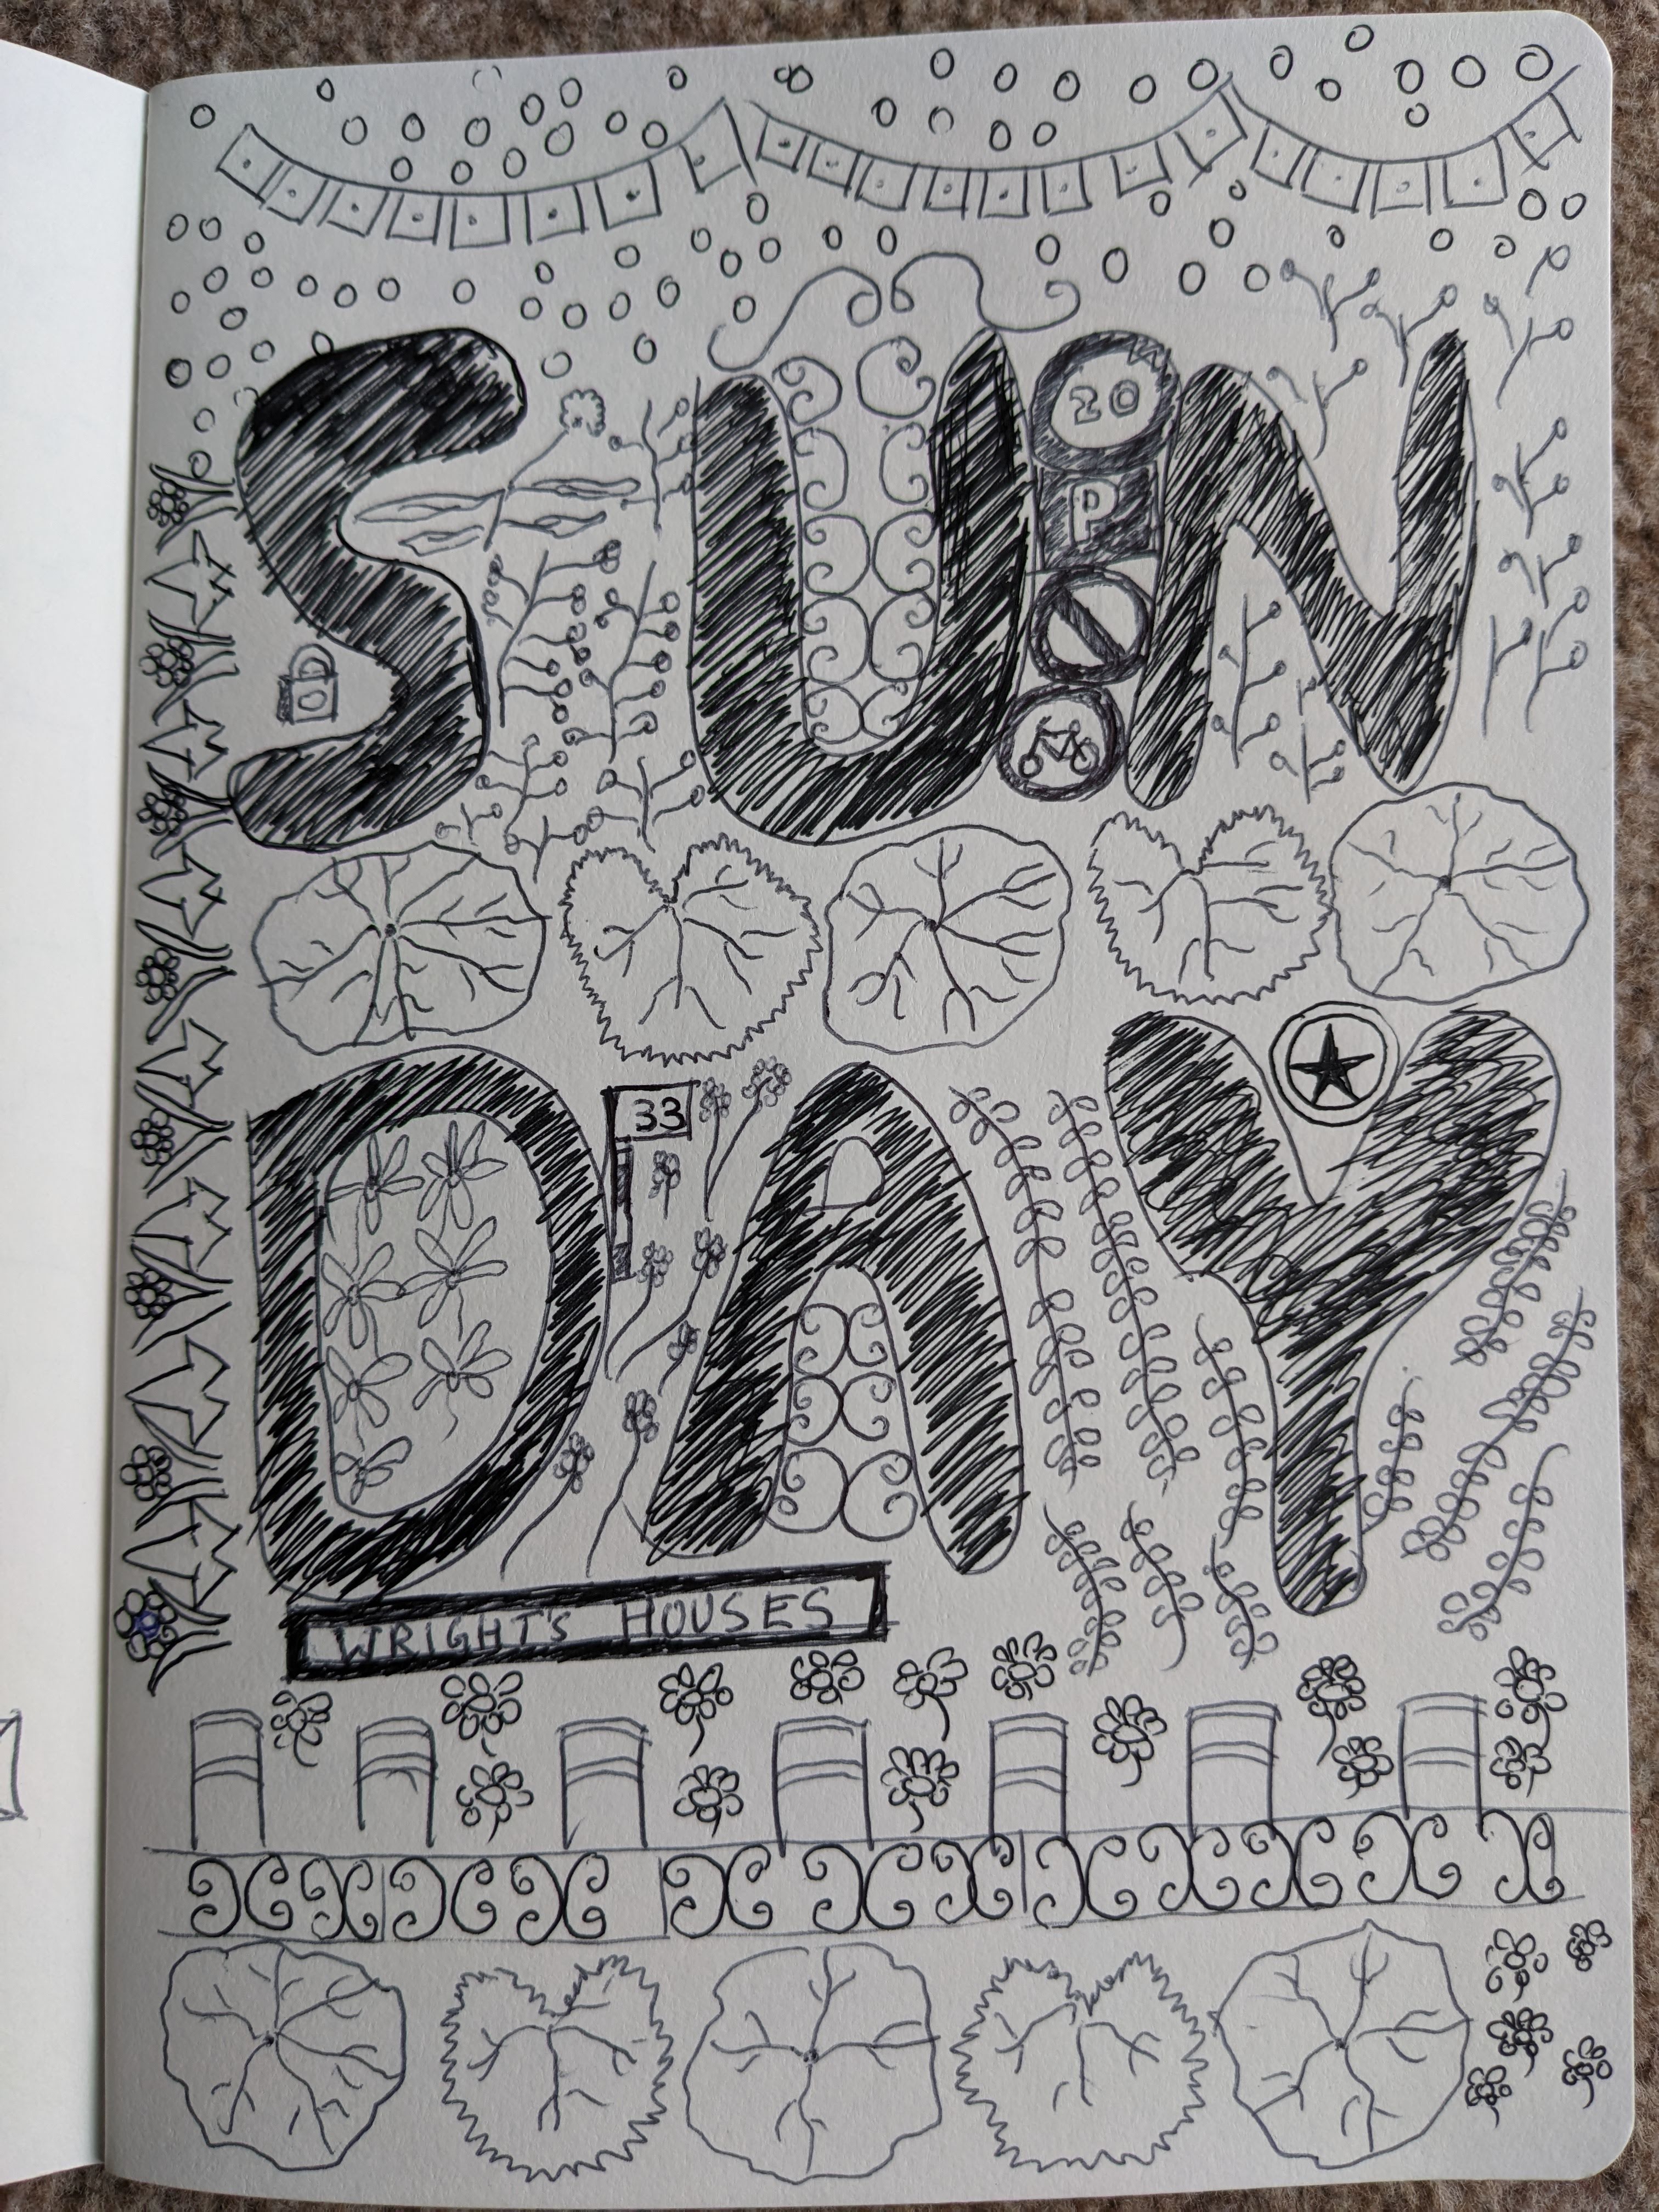 SUN
20
P
DAY
33
WRIGHT'S HOUSES